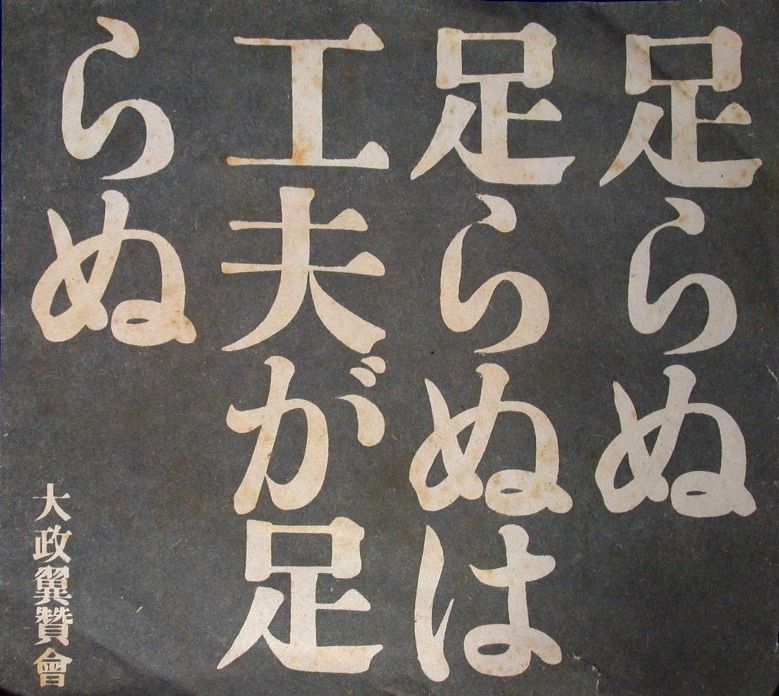 足らぬ
足らぬは
工夫が足
らぬ
大政翼贊會